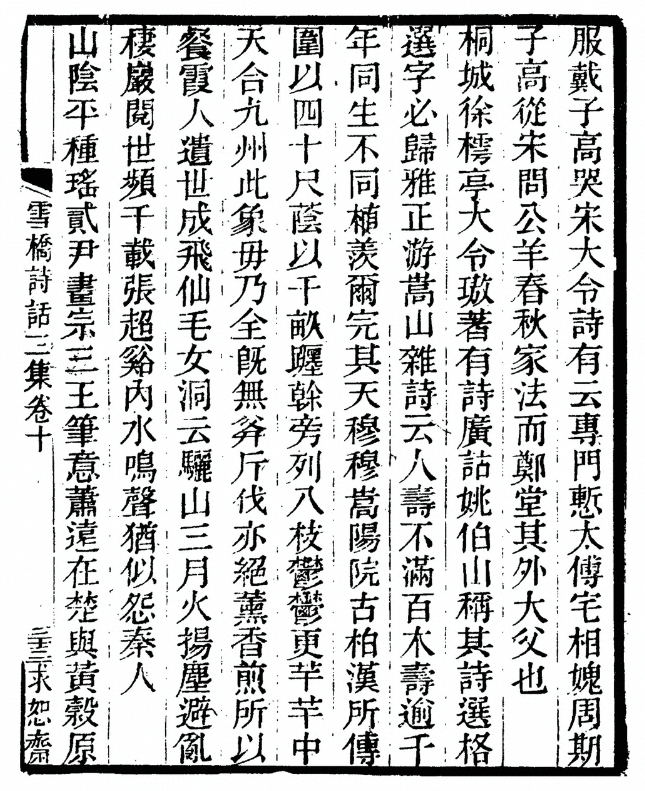 服戴子高哭宋大令詩有云專門慙太傅宅相媿周期
子高從宋問公羊春秋家法而鄭堂其外大父也
桐城徐樗亭大令璈著有詩廣詁姚伯山稱其詩選格
選字必歸雅正游嵩山雜詩云人壽不滿百木壽逾千
年同生不同植羨爾完其天穆穆嵩陽院古柏漢所傳
圍以四十尺蔭以千畝躔幹旁列八枝鬱鬱更芊芊中
天合九州此象毋乃全旣無斧斤伐亦絕薰香煎所以
餐霞人遺世成飛仙毛女洞云驪山三月火揚塵避亂
棲巖閱世頻千載張超谿內水鳴聲猶似怨秦人
山陰平種瑤貳尹畫宗三王筆意蕭遠在楚與黃穀原
雪橋詩話二集卷十
三十三求恕齋